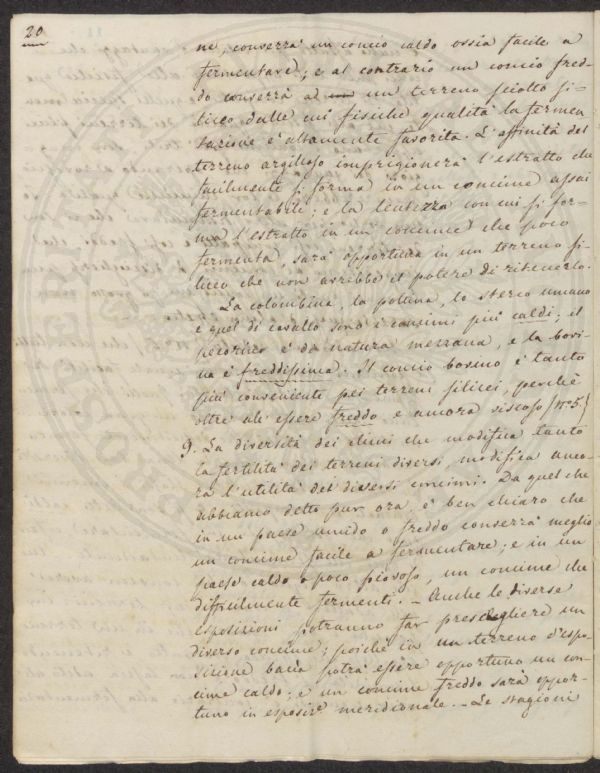 20
ne, converrà un concio caldo ossia facile a
fermentare; e al contrario un concio fred-
do converrà ad un terreno sciolto si-
liceo dalle cui fisiche qualità la fermen
tazione è altamente favorita. L'affinità del
terreno argilloso imprigionerà l'estratto che
facilmente si forma in un concime assai
fermentabile; e la lentezza con cui si for-
ma l'estratto in un concime che poco
fermenta, sarà opportuna in un terreno si-
liceo che non avrebbe il potere di ritenerlo.
La colombina, la pollina, lo sterco umano
e quel di cavallo sono i concimi più caldi; il
pecorino è di natura mezzana, e la bovi-
na è freddissima. Il concio bovino è tanto
più conveniente pei terreni silicei, perchè
oltre all' essere freddo e ancora viscoso (n°5)
9. La diversità dei climi che modifica tanto
la fertilità dei terreni diversi, modifica anco-
ra l'utilità dei diversi concimi. Da quel che
abbiamo detto pur ora, è ben chiaro che
in un paese umido o freddo converrà meglio
un concime facile a fermentare; e in un
paese caldo o poco piovoso, un concime che
difficilmente fermenti. _ Anche le diverse
esposizioni potranno far prescegliere un
diverso concime; poichè in un terreno d'espo-
sizione bacìa potrà essere opportuno un con-
cime caldo; e un concime freddo sarà oppor-
tuno in esposize meridionale. _ Le stagioni